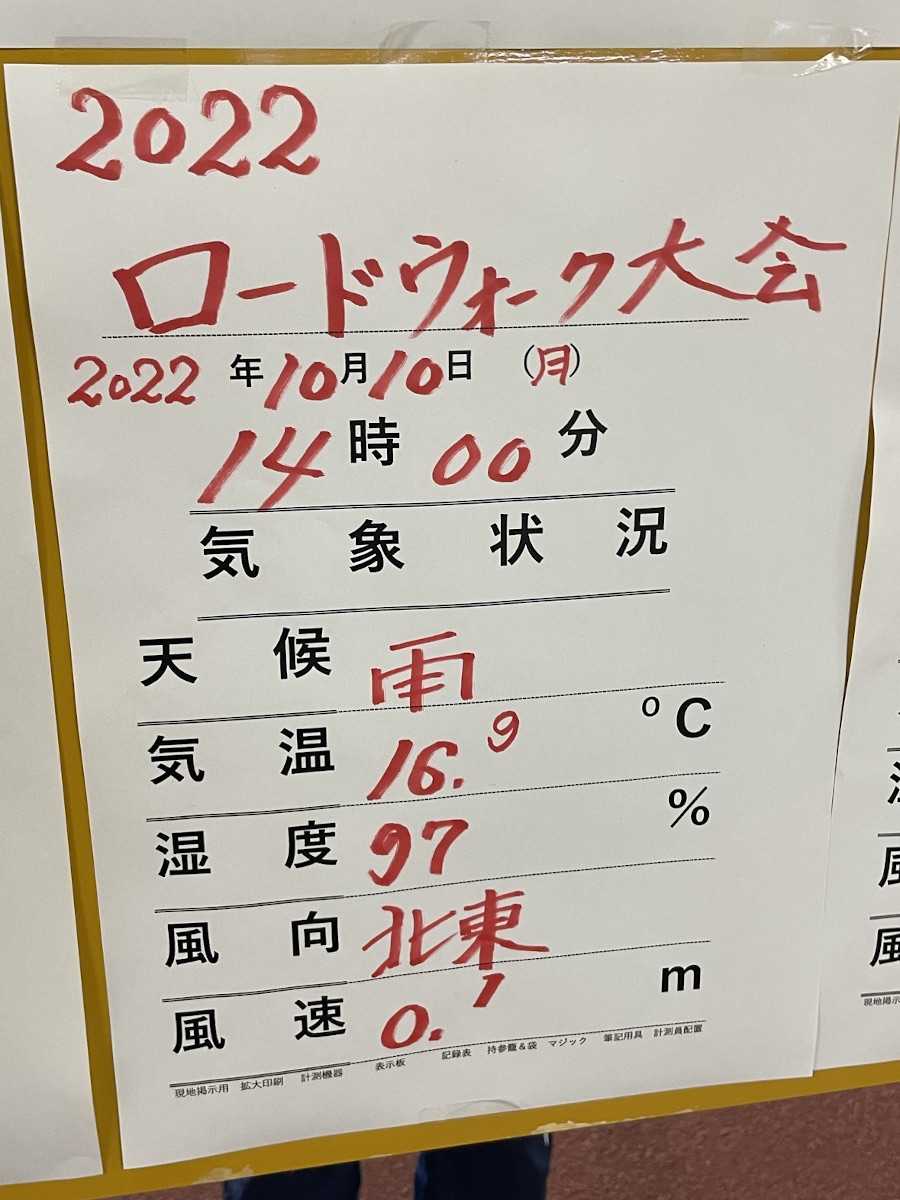 2022
ロードウォーク大会
2022年10月10日(月)
14時00分
気象状況
天候 雨
気温 16.9 ℃
湿度 97 %
風向 北東
風速 0.1 m
現地掲示用 拡大印刷 計測機器 表示板 記録表 持参籠&袋 マジック 筆記用具 計測員配置
風
風
現地掲示